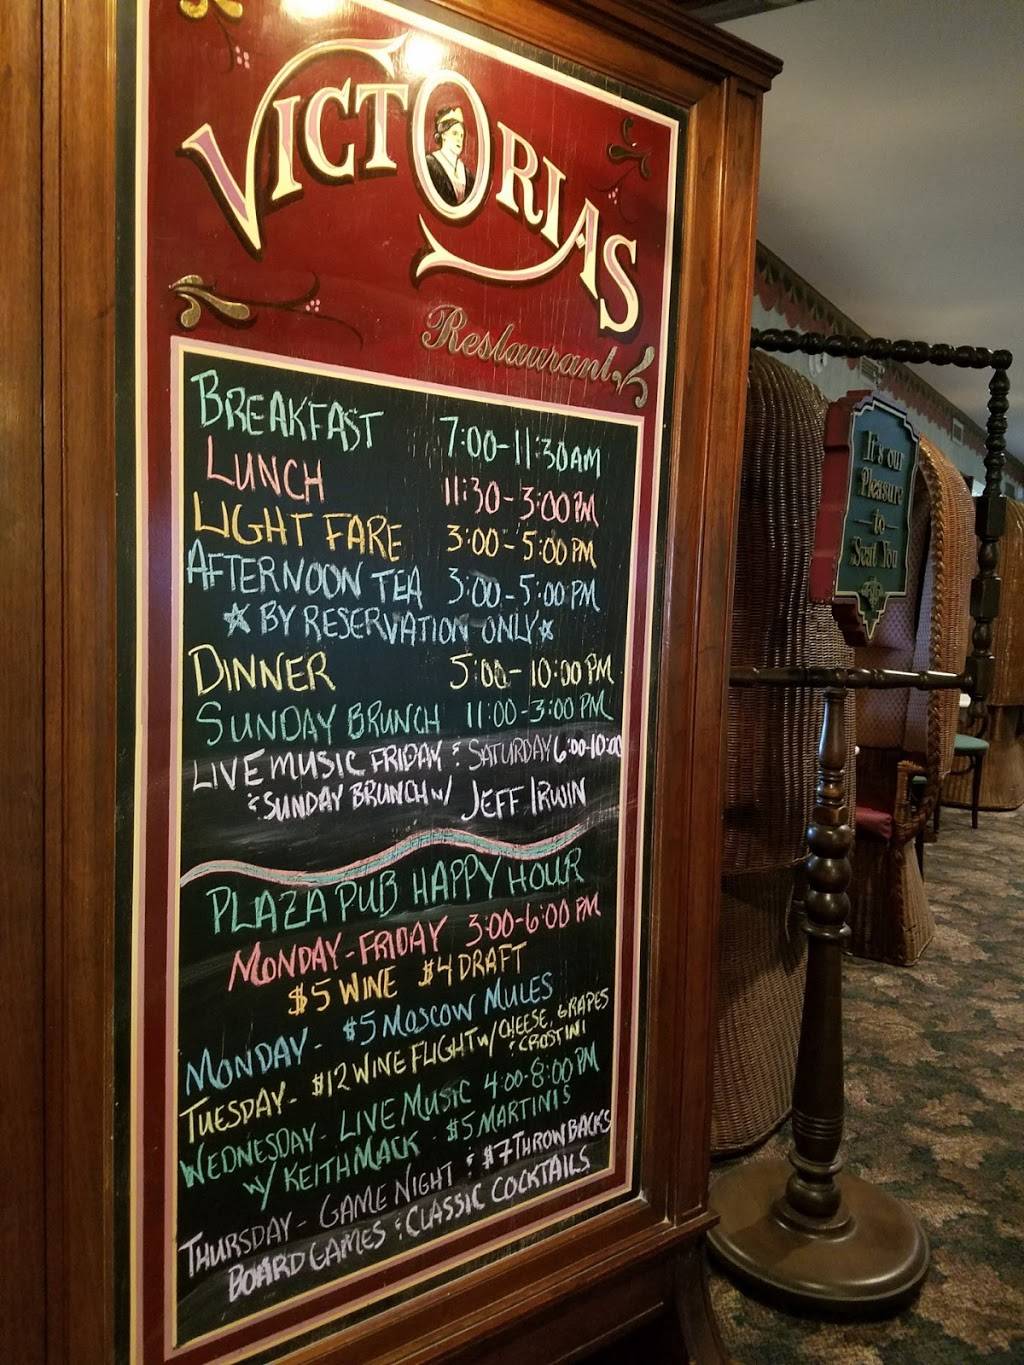 VICTORIAS
Restaurant
BREAKFAST 7:00-11:30AM
LUNCH 11:30-3:00PM
LIGHT FARE 3:00-5:00PM
AFTERNOON TEA 3:00-5:00PM
☆ BY RESERVATION ONLY ☆
DINNER 5:00-10:00PM
SUNDAY BRUNCH 11:00-3:00PM
LIVE MUSIC FRIDAY & SATURDAY 6:00-10:00
& SUNDAY BRUNCH w/ JEFF IRWIN
PLAZA PUB HAPPY HOUR
MONDAY-FRIDAY 3:00-6:00PM
$5 WINE $4 DRAFT
MONDAY- $5 MOSCOW MULES
TUESDAY- $12 WINE FLIGHT w/ CHEESE, GRAPES
& CROSTINI
WEDNESDAY- LIVE MUSIC 4:00-8:00PM
w/ KEITH MACK - $5 MARTINIS
THURSDAY- GAME NIGHT & $7 THROWBACKS
BOARD GAMES & CLASSIC COCKTAILS
It's our
Pleasure
to
Seat You